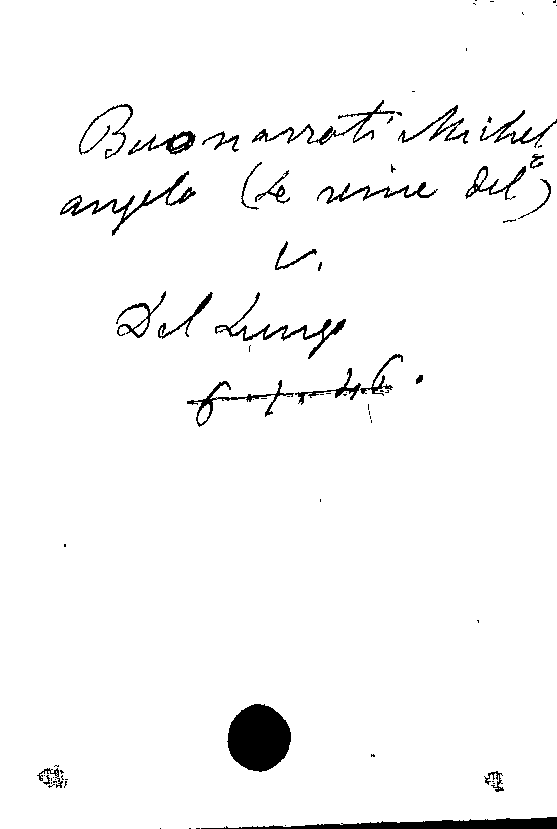 Buonarroti Michel
angelo (Le rime del)
V.
Del Lungo
6.1.46.